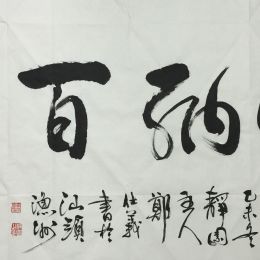 納百
乙未冬
靜園
主人
鄭
仕義
書於
汕頭
漁洲